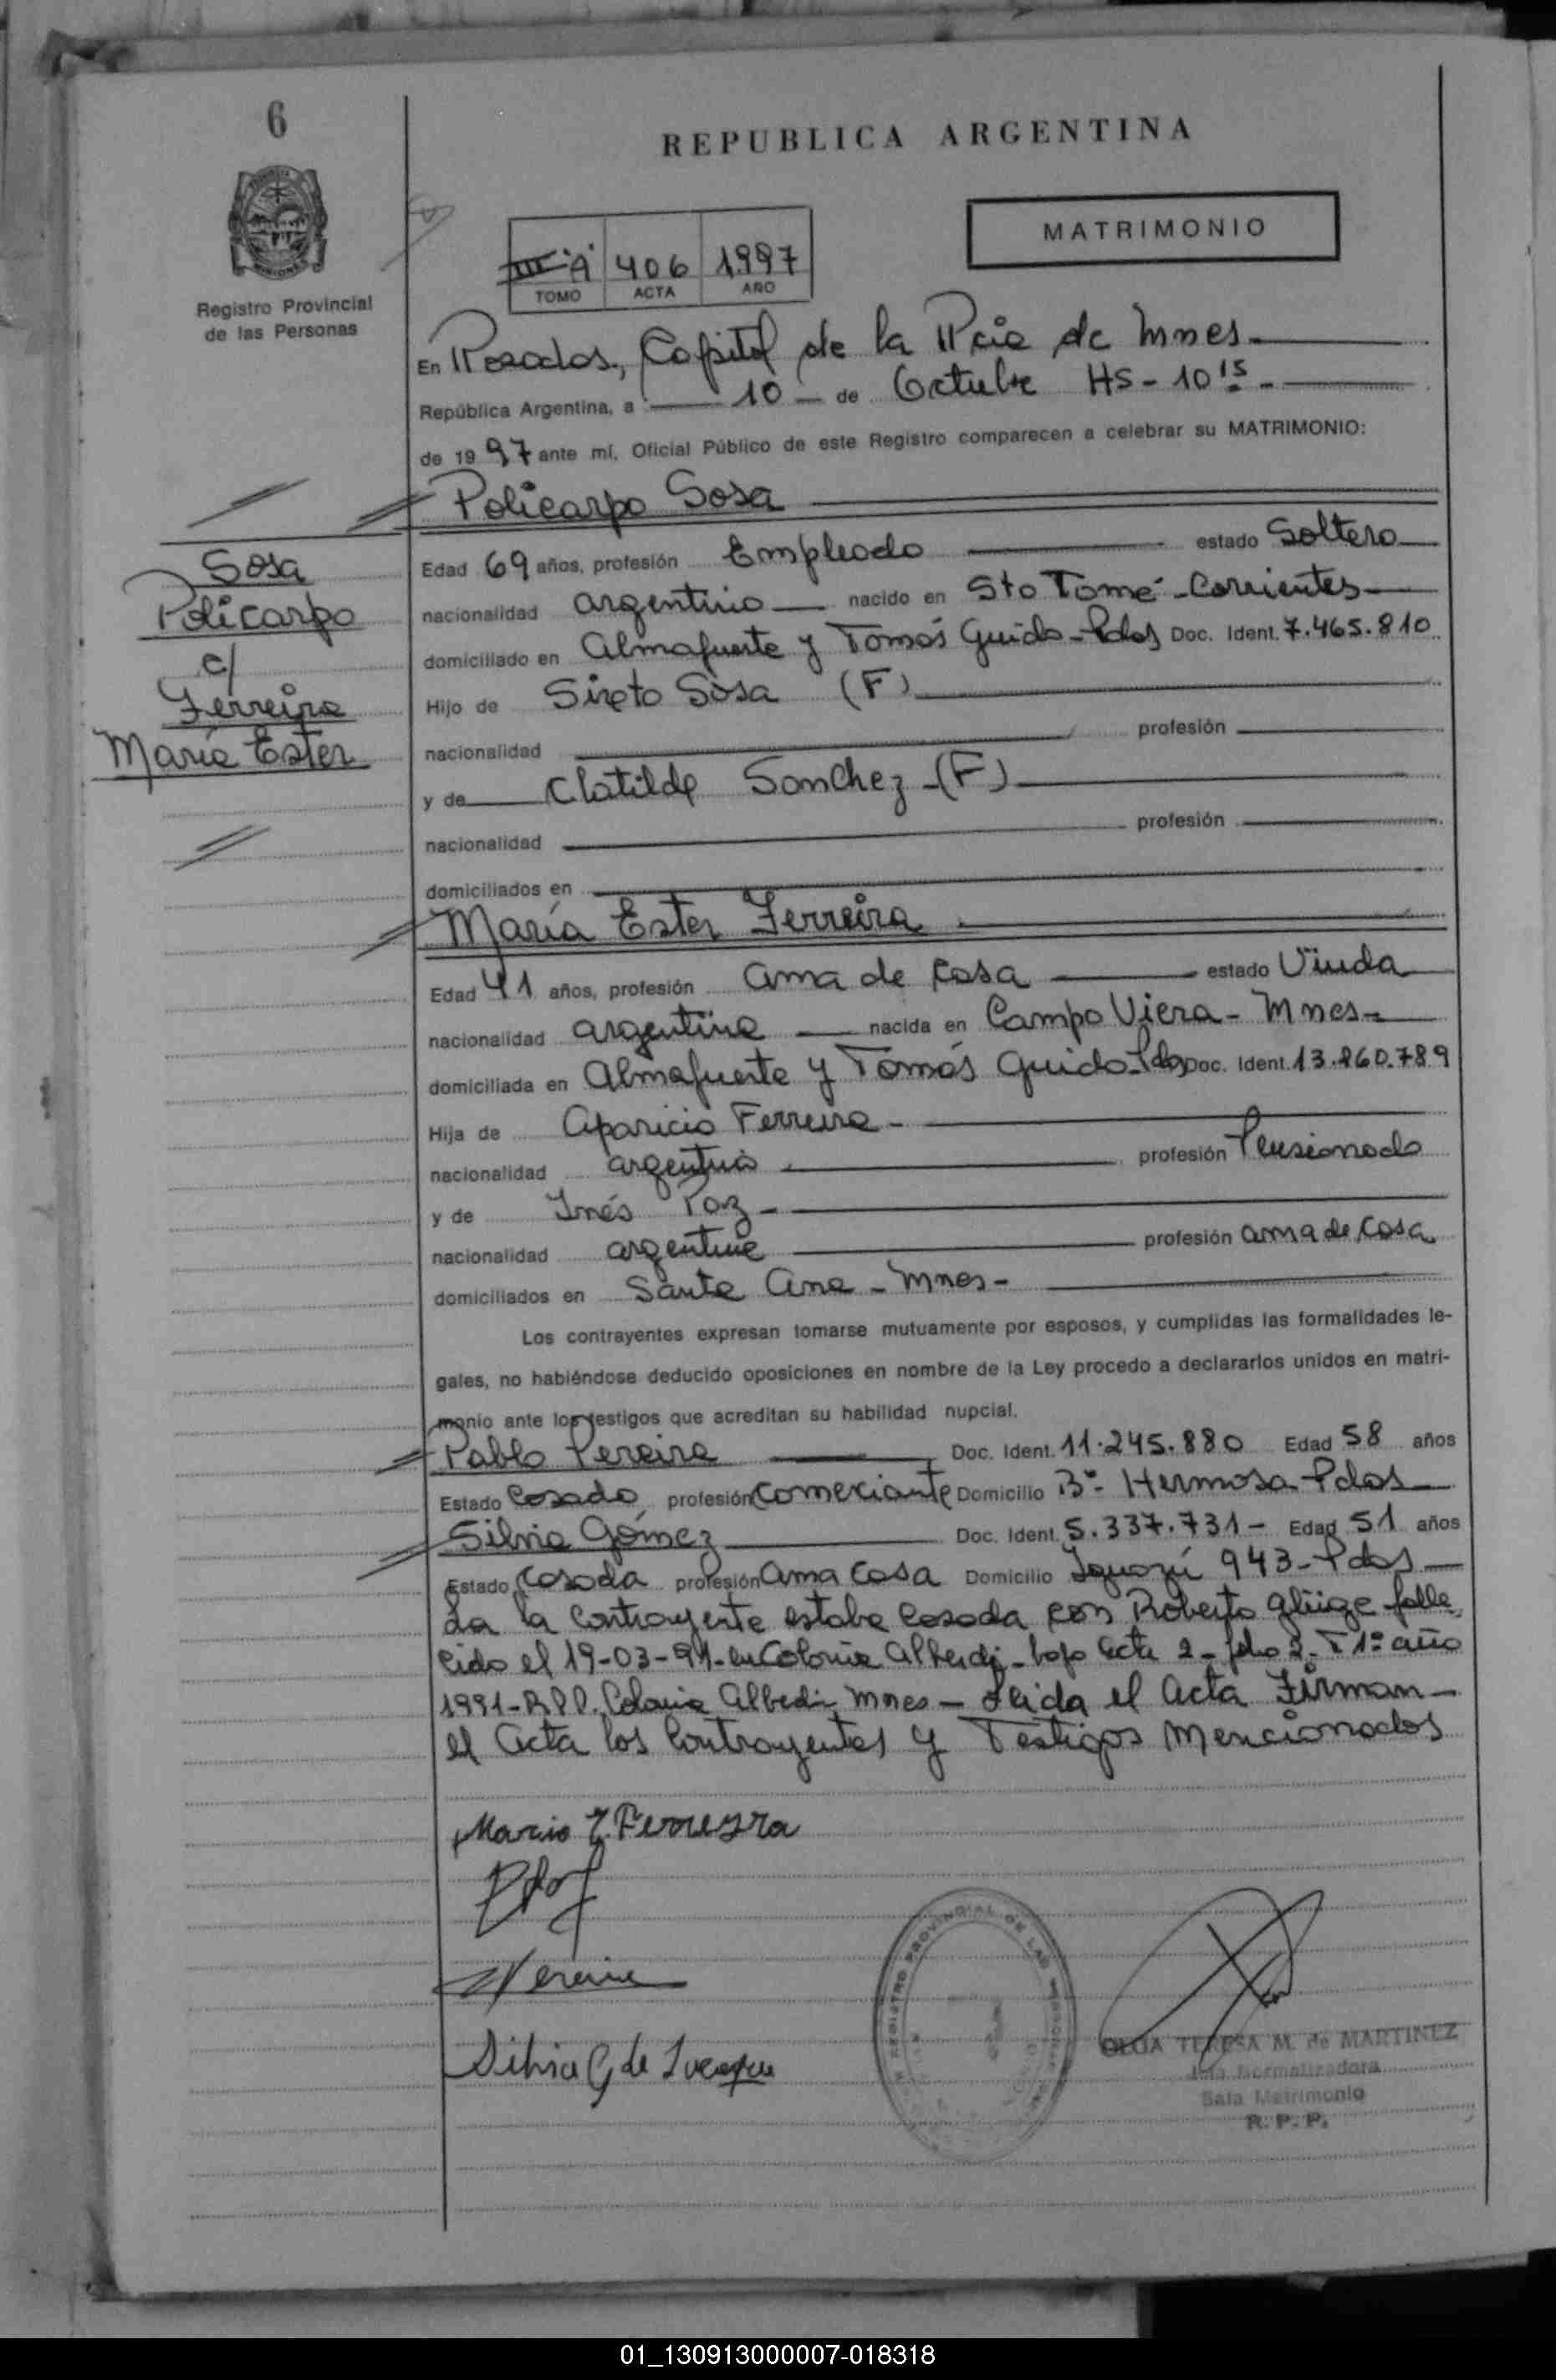 6
REPUBLICA ARGENTINA
MATRIMONIO
Registro Provincial
de las Personas
III "A" 406 1997
TOMO ACTA AÑO
En Posadas, Capital de la Pcia de Mnes.
República Argentina, a 10 de Octubre HS - 10 15 -
de 1997 ante mí, Oficial Público de este Registro comparecen a celebrar su MATRIMONIO:
Policarpo Sosa
Sosa
Policarpo
c/
Ferreira
María Ester
Edad 69 años, profesión Empleado estado Soltero
nacionalidad argentino nacido en Sto Tomé - Corrientes
domiciliado en Almafuerte y Tomás Guido - Pdas Doc. Ident. 7.465.810
Hijo de Sixto Sosa (F)
nacionalidad profesión
y de Clotilde Sanchez - (F)
nacionalidad profesión
domiciliados en
María Ester Ferreira
Edad 41 años, profesión ama de casa estado Viuda
nacionalidad argentina nacida en Campo Viera - Mnes -
domiciliada en Almafuerte y Tomás Guido - Pdas Doc. Ident. 13.860.789
Hija de Aparicio Ferreira -
nacionalidad argentino profesión Pensionado
y de Inés Paz -
nacionalidad argentina profesión ama de casa
domiciliados en Santa Ana - Mnes -
Los contrayentes expresan tomarse mutuamente por esposos, y cumplidas las formalidades le-
gales, no habiéndose deducido oposiciones en nombre de la Ley procedo a declararlos unidos en matri-
monio ante los testigos que acreditan su habilidad nupcial.
Pablo Pereira Doc. Ident. 11.245.880 Edad 58 años
Estado Casado profesión Comerciante Domicilio Bº Hermosa - Pdas
Silvia Gómez Doc. Ident. 5.337.731 - Edad 51 años
Estado Casada profesión ama casa Domicilio Iguazú 943 - Pdas
la contrayente estaba casada con Roberto glüge falle
cido el 19-03-91 - en Colonia Alberdi - bajo acta 2 - folio 2 - T 1º año
1991 - R.P.P. Colonia Alberdi Mnes - Leida el Acta Firman -
el Acta los Contrayentes y Testigos Mencionados
Maria E. Ferreyra
Pereira
Silvia G de
REGISTRO PROVINCIAL DE LAS PERSONAS
OLGA TERESA M. de MARTINEZ
Jefa Normalizadora
Sala Matrimonio
R. P. P.
01_130913000007-018318